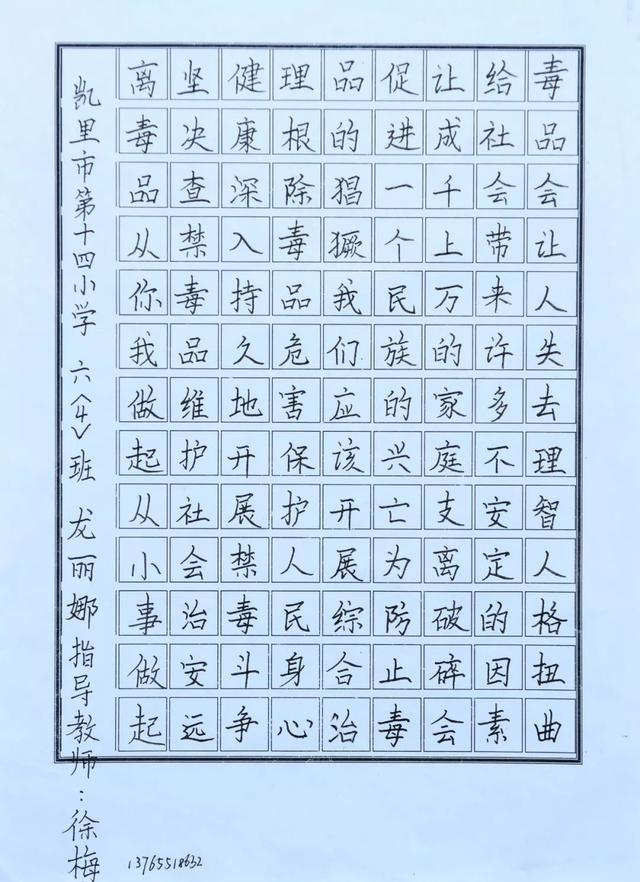 毒品会让人失去理智人格扭曲
给社会带来许多不安定的因素
让成千上万的家庭支离破碎会
促进一个民族的兴亡为防止毒
品的猖獗我们应该开展综合治
理根除毒品危害保护人民身心
健康深入持久地开展禁毒斗争
坚决查禁毒品维护社会治安远
离毒品从你我做起从小事做起
凯里市第十四小学 六〈4〉班 龙丽娜指导教师:徐梅
13765518632